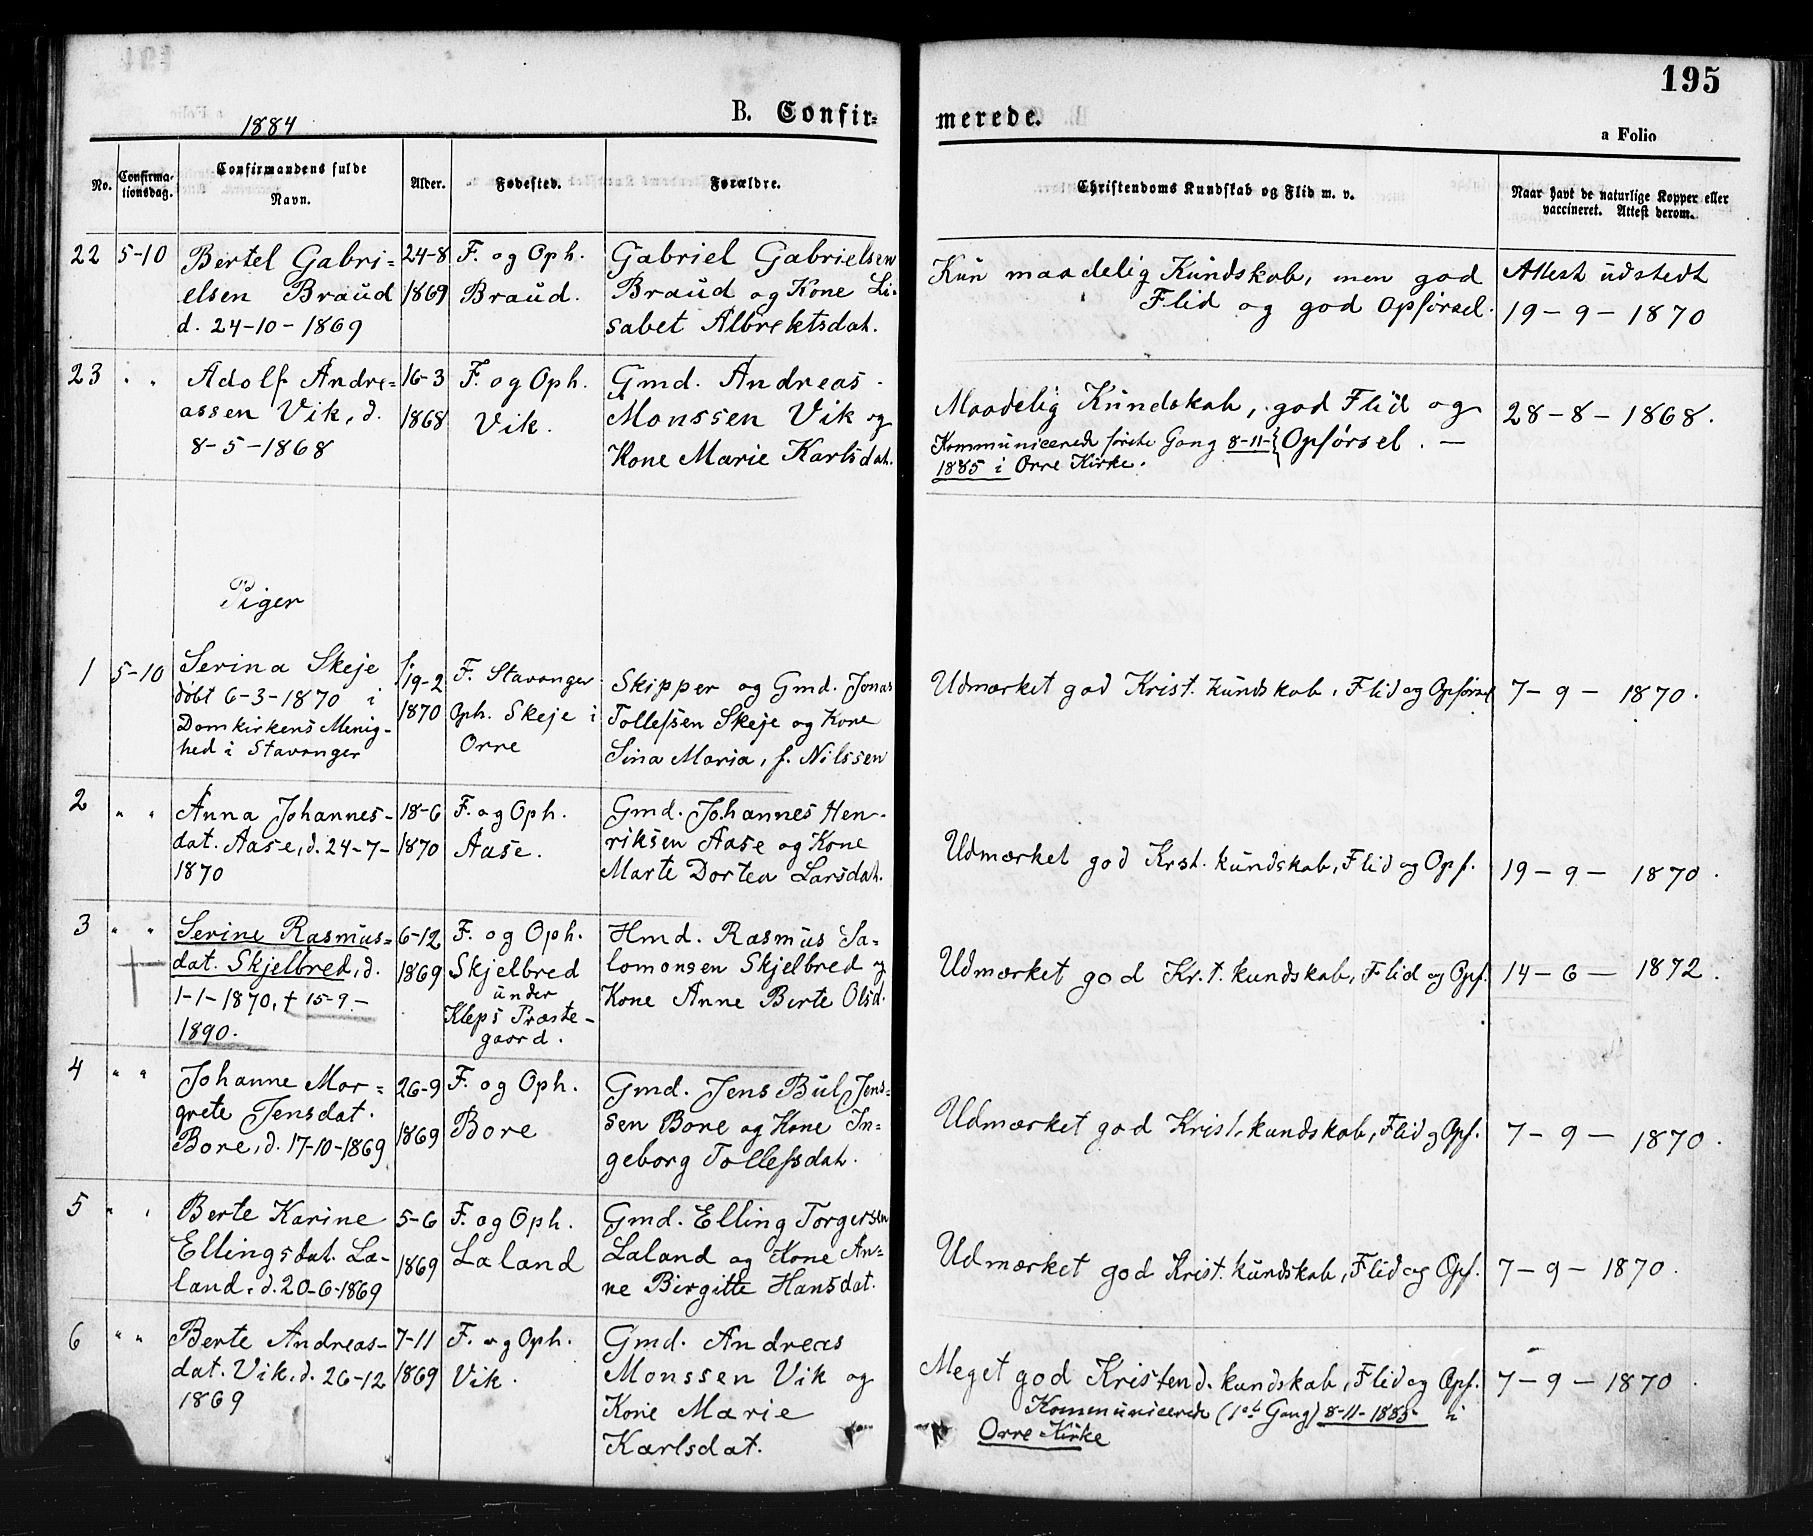 195
1884
B. Confir=
merede.
a Folio
No.
Confirma-
tionsdag.
Confirmandens fulde
Navn.
Alder.
Fødested.
Forældre.
Christendoms Kundskab og Flid m. v.
Naar havt de naturlige Kopper eller
vaccineret. Attest derom.
22
5-10
Bertel Gabri=
elsen Braud
d. 24-10-1869
24-8
1869
F. og Oph.
Braud.
Gabriel Gabrielsen
Braud og Kone Li-
sabet Albrektsdat.
Kun maadelig Kundskab, men god
Flid og god Opførsel.
Attest udstedt
19-9-1870
23
" "
Adolf Andre=
assen Vik, d.
8-5-1868
16-3
1868
F. og Oph.
Vik.
Gmd. Andreas
Monssen Vik og
Kone Marie Karlsdat.
Maadelig Kundskab, god Flid og
Kommunicerede første Gang 8-11- Opførsel. —
1885 i Orre Kirke.
28-8-1868.
Piger
1
5-10
Serina Skeje
døbt 6-3-1870 i
Domkirkens Menig-
hed i Stavanger
f.
19-2
1870
F. Stavanger
Oph. Skeje i
Orre
Skipper og Gmd. Jonas
Tollefsen Skeje og Kone
Sina Maria, f. Nilssen
Udmærket god Krist. kundskab, Flid og Opførsel
7-9-1870.
2
" "
Anna Johannes-
dat. Aase, d. 24-7-
1870
18-6
1870
F. og Oph.
Aase.
Gmd. Johannes Hen-
riksen Aase og Kone
Marte Dortea Larsdat.
Udmærket god Krst. kundskab, Flid og Opf.
19-9-1870.
3
" "
Serine Rasmus=
dat. Skjelbred, d.
1-1-1870, † 15-9-
1890.
6-12
1869
F. og Oph.
Skjelbred
under
Kleps Præste-
gaard.
Hmd. Rasmus Sa-
lomonsen Skjelbred og
Kone Anne Berte Olsd.
Udmærket god Kr.t. kundskab, Flid og Opf.
14-6-1872.
4
" "
Johanne Mar=
grete Jensdat.
Bore, d. 17-10-1869
26-9
1869
F. og Oph.
Bore
Gmd. Jens Bul Jens=
sen Bore og Kone In=
geborg Tollefsdat.
Udmærket god Krist. kundskab, Flid og Opf.
7-9-1870.
5
" "
Berte Karine
Ellingsdat. La-
land, d. 20-6-1869
5-6
1869
F. og Oph.
Laland
Gmd. Elling Torgersen
Laland og Kone An=
ne Birgitte Hansdat.
Udmærket god Krist. kundskab, Flid og Opf.
7-9-1870.
6
" "
Berte Andreas-
dat. Vik, d. 26-12
1869
7-11
1869
F. og Oph.
Vik.
Gmd. Andreas
Monssen Vik og
Kone Marie
Karlsdat.
Meget god Kristend. kundskab, Flid og Opf.
Kommunicerede (1ste Gang) 8-11-1885 i
Orre Kirke
7-9-1870.